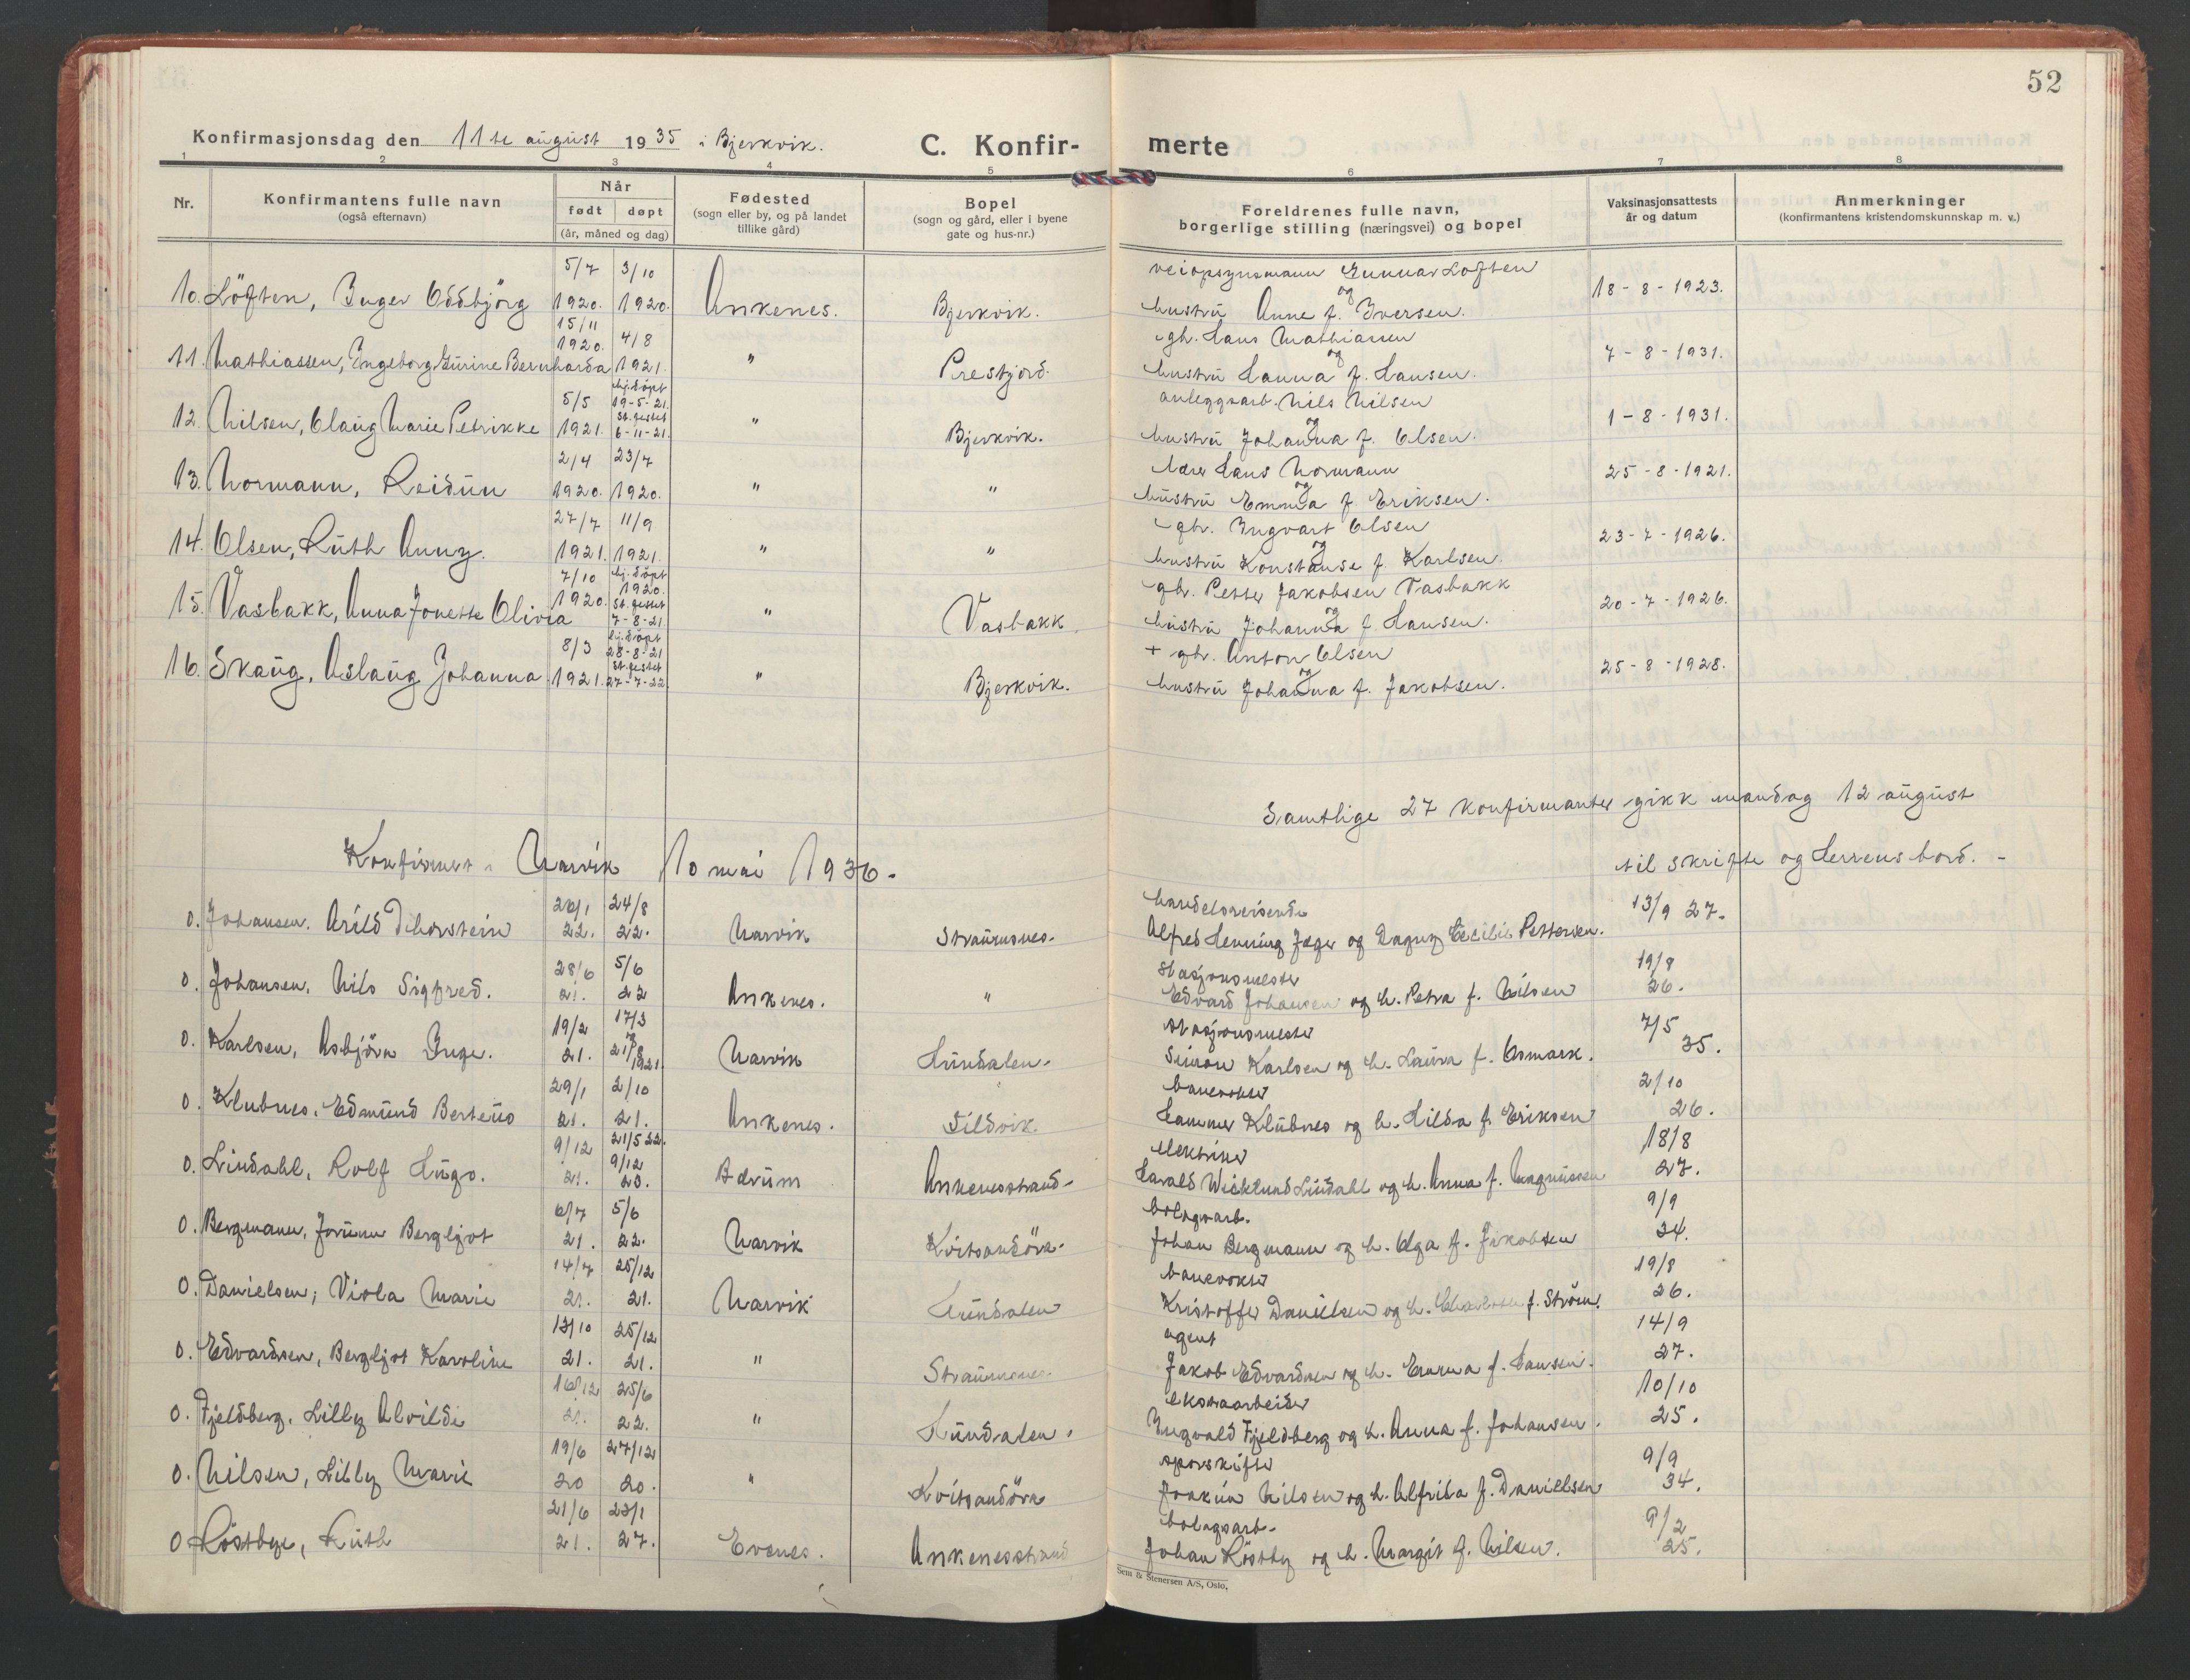 52
Konfirmasjonsdag den 11te august 1935 i Bjerkvik.
C. Konfir-
merte
1 2 3 4 5 6 7 8
Nr.
Konfirmantens fulle navn
(også efternavn)
Når
født døpt
(år, måned og dag)
Fødested
(sogn eller by, og på landet
tillike gård)
Bopel
(sogn og gård, eller i byene
gate og hus-nr.)
Foreldrenes fulle navn,
borgerlige stilling (næringsvei) og bopel
Vaksinasjonsattests
år og datum
Anmerkninger
(konfirmantens kristendomskunnskap m. v.)
5/7 3/10 veiopsynsmann Gunnar Løften
10. Löften, Inger Oddbjörg 1920. 1920. Ankenes. Bjerkvik. og hustru Anne f. Iversen. 18-8-1923.
15/11 4/8 gb. Hans Mathiassen
11. Mathiassen, Ingeborg Gurine Bernharda 1920. 1921. " Prestjord. og hustru Hanna f. Hansen. 7-8-1931.
5/5 hj.döpt 19-5-21 anleggsarb. Nils Nilsen
12. Nilsen, Olaug Marie Petrikke 1921. st.festet 6-11-21. " Bjerkvik. og hustru Johanna f. Olsen. 1-8-1931.
2/4 23/7 lærer Hans Normann
13. Normann, Reidun 1920. 1920. " " og hustru Emma f. Eriksen. 25-8-1921.
27/7 11/9 gb. Ingvart Olsen
14. Olsen, Ruth Anny. 1921. 1921. " " og hustru Konstanse f. Karlsen. 23-7-1926.
7/10 hj.döpt 1920. gb. Petter Jakobsen Vasbakk
15. Vasbakk, Anna Jonette Olivia 1920. st.festet 7-8-21 " Vasbakk. og hustru Johanna f. Hansen. 20-7-1926.
8/3 hj.döpt 28-8-21 + gb. Anton Olsen
16. Skaug, Aslaug Johanna 1921. st.festet 27-7-22 " Bjerkvik. og hustru Johanna f. Jakobsen. 25-8-1928.
Samtlige 27 konfirmanter gikk mandag 12 august
til skrifte og Herrens bord. -
Konfirmert i Narvik 10 mai 1936.
26/1 24/8 handelsreisende 13/9 27.
0. Johansen. Arild Thorstein 22. 22. Narvik Straumsnes. Alfred Henning Jæger og Dagny Cecilie Pettersen.
28/6 5/6 stasjonsmester 19/8
0. Johansen, Nils Sigfred. 21. 22 Ankenes. " Edvard Johansen og h. Petra f. Nilsen 26.
19/2 17/3 stasjonsmester 7/5
0. Karlsen, Asbjörn Inge. 21. og 21/8 1921. Narvik Hundalen. Simon Karlsen og h. Laura f. Osmark. 35.
29/1 2/10 banevokter 2/10
0. Klubnes. Edmund Berteus 21. 21. Ankenes. Sildvik. Hammer Klubnes og h. Hilda f. Eriksen 26.
9/12 21/5 22. elektriker 18/8
0. Lindahl, Rolf Hugo. 21. 9/12 23. Bærum Ankenesstrand. Harald Wicklund Lindahl og h. Anna f. Magnussen 27.
6/7 5/6 bolagsarb. 9/9
0. Bergmann, Jorunn Bergljot 21. 22. Narvik Kvitsandöra. Johan Bergmann og h. Olga f. Jakobsen 34.
14/7 25/12 banevokter 19/8
0. Danielsen, Viola Marie 21. 21. Narvik Hundalen Kristoffer Danielsen og h. f. Ström. 26.
13/10 25/12 agent 14/9
0. Edvardsen, Bergljot Karoline 21. 21. " Straumsnes. Jakob Edvardsen og h. Emma f. Hansen. 27.
16/12 25/6 ekstraarbeider 10/10
0. Fjeldberg, Lilly Alvilde 21. 22. " Hundalen. Ingvald Fjeldberg og h. Anna f. Johansen. 25.
19/6 27/12 sporskifter 9/9
0. Nilsen, Lilly Marie 20 20. " Kvitsandöra Joakim Nilsen og h. Alfrida f. Daniellsen 34.
21/6 23/1 bolagsarb. 9/2
0 Röstbye, Ruth 21. 27. Evenes. Ankenesstrand Johan Röstby og h. Margit f. Nilsen. 25.
Sem & Stenersen A/S, Oslo.